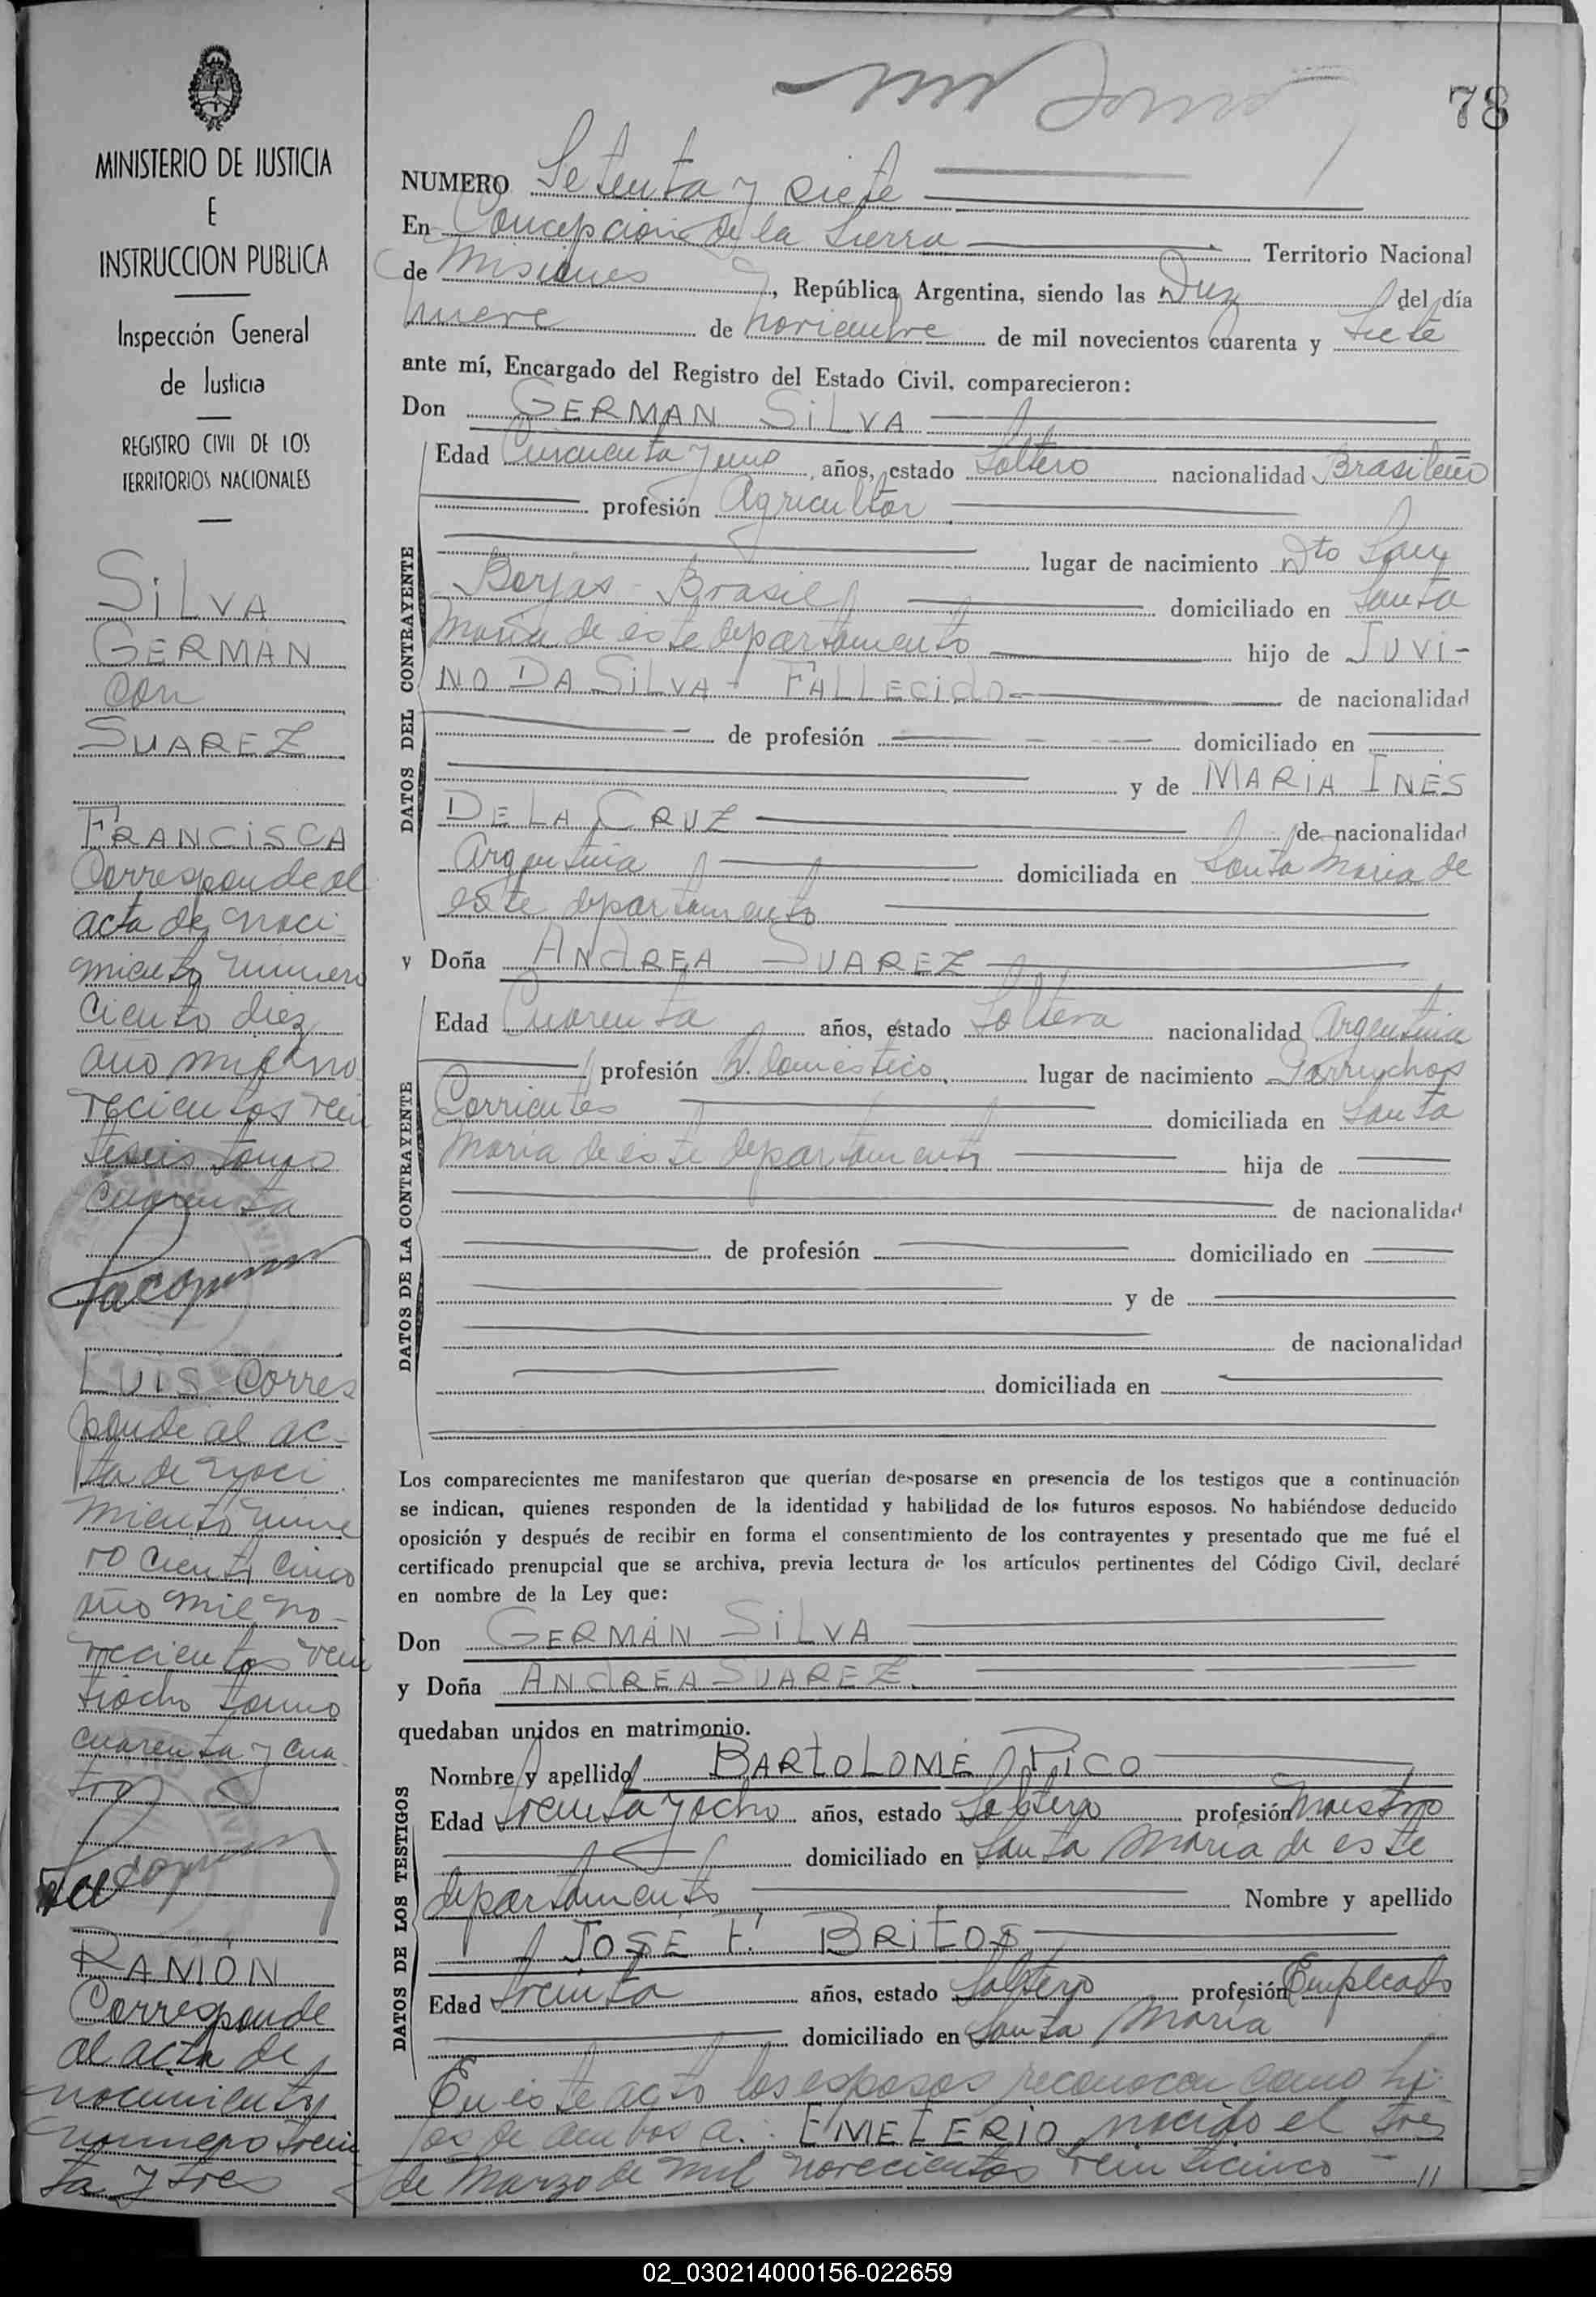 78
MINISTERIO DE JUSTICIA
E
INSTRUCCION PUBLICA
Inspección General
de Justicia
REGISTRO CIVIL DE LOS
TERRITORIOS NACIONALES
SILVA
GERMAN
con
SUAREZ
FRANCISCA
Corresponde al
acta de naci
miento número
ciento diez
año mil no
vecientos vein
tiseis tomo
cuarenta
LUIS Corres
ponde al ac-
ta de naci
miento núme
ro ciento cinco
año mil no-
vecientos vein
tiocho tomo
cuarenta y cua
tro
RAMÓN
Corresponde
al acta de
nacimiento
número trein
ta y tres
NUMERO Setenta y siete
En Concepción de la Sierra Territorio Nacional
de Misiones, República Argentina, siendo las Diez del día
nueve de noviembre de mil novecientos cuarenta y siete
ante mí, Encargado del Registro del Estado Civil, comparecieron:
Don GERMAN SILVA
DATOS DEL CONTRAYENTE
Edad Cincuenta y uno años, estado Soltero nacionalidad Brasileño
profesión Agricultor
lugar de nacimiento Dto San
Borjas - Brasil domiciliado en Santa
María de este departamento hijo de JUVI-
NO DA SILVA - FALLECIDO - de nacionalidad
de profesión domiciliado en
y de MARIA INÉS
DE LA CRUZ de nacionalidad
Argentina domiciliada en Santa María de
este departamento
y Doña ANDREA SUAREZ
DATOS DE LA CONTRAYENTE
Edad Cuarenta años, estado Soltera nacionalidad Argentina
profesión Q. domestico lugar de nacimiento Garruchos
Corrientes domiciliada en Santa
María de este departamento hija de
de nacionalidad
de profesión domiciliado en
y de
de nacionalidad
domiciliada en
Los comparecientes me manifestaron que querían desposarse en presencia de los testigos que a continuación
se indican, quienes responden de la identidad y habilidad de los futuros esposos. No habiéndose deducido
oposición y después de recibir en forma el consentimiento de los contrayentes y presentado que me fué el
certificado prenupcial que se archiva, previa lectura de los artículos pertinentes del Código Civil, declaré
en nombre de la Ley que:
Don GERMÁN SILVA
y Doña ANDREA SUAREZ
quedaban unidos en matrimonio.
DATOS DE LOS TESTIGOS
Nombre y apellido BARTOLOMÉ PICO
Edad treinta y ocho años, estado Soltero profesión Maestro
domiciliado en Santa María de este
departamento Nombre y apellido
JOSÉ F. BRITOS
Edad treinta años, estado Soltero profesión Empleado
domiciliado en Santa María
En este acto los esposos reconocen como hi-
jos de ambos a: EMETERIO nacido el tres
de Marzo de mil novecientos veinticinco - //
02_030214000156-022659